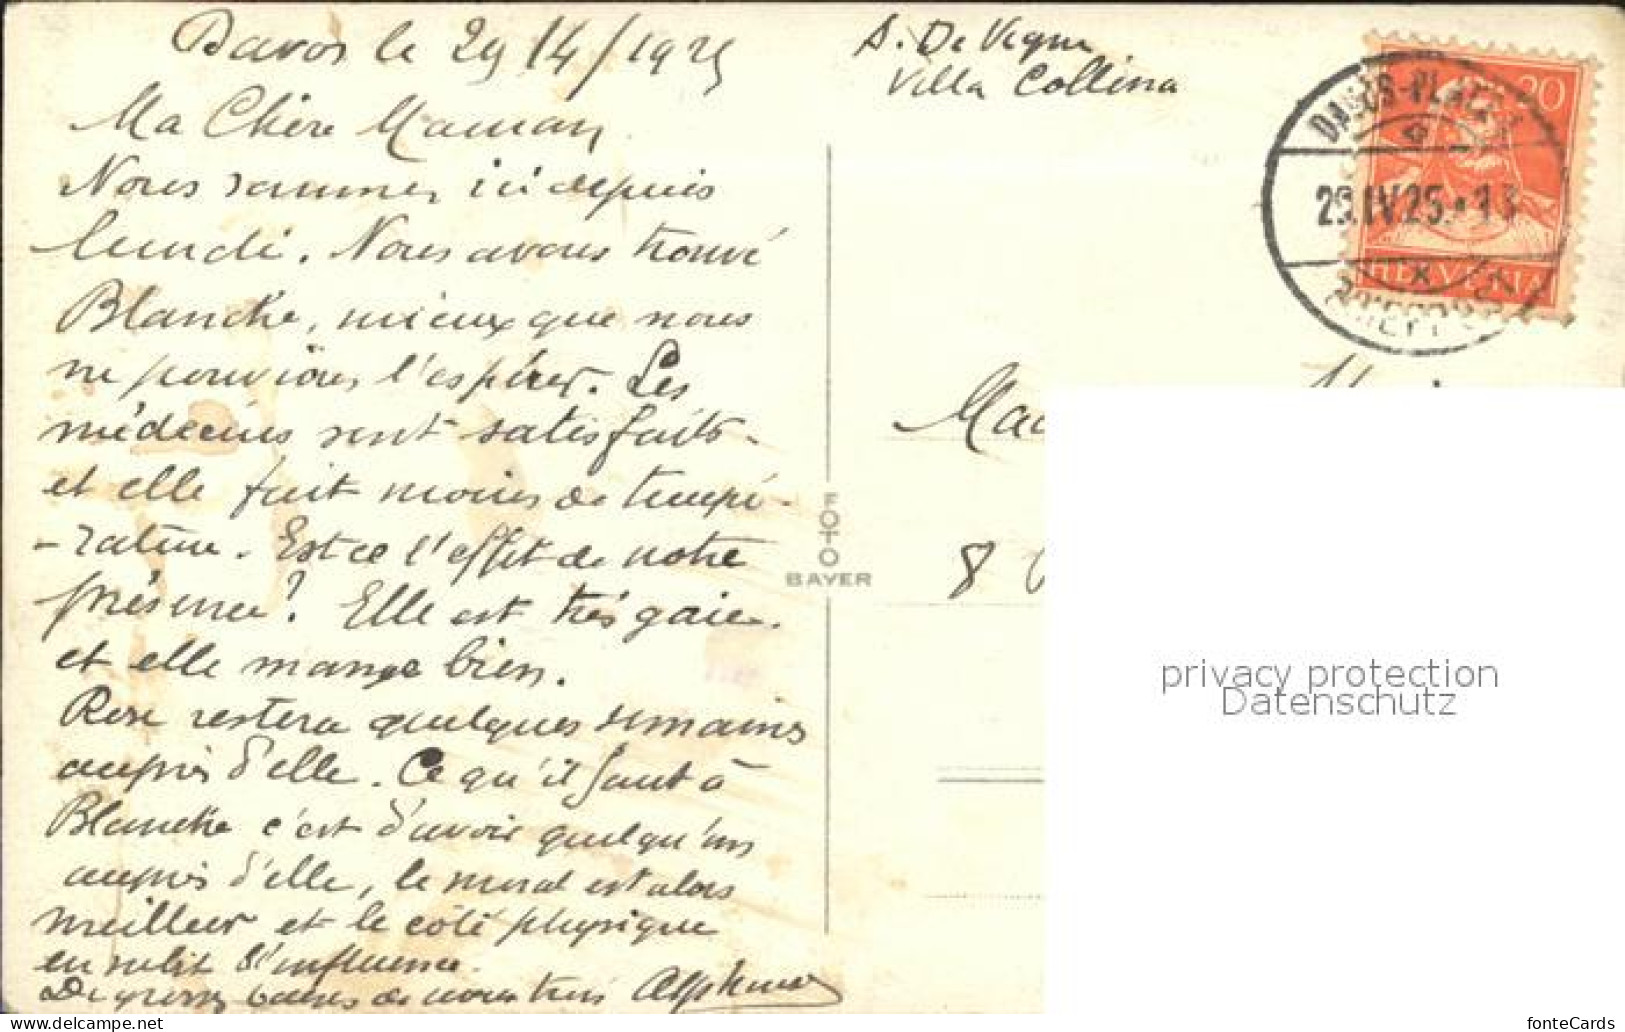 Davos le 29/4/1925
Ma Chère Maman
Nous sommes ici depuis
lundi. Nous avons trouvé
Blanche, mieux que nous
ne pouvions l'espérer. Les
médecins sont satisfaits
et elle fait moins de tempé-
-rature. Est ce l'effet de notre
présence? Elle est très gaie
et elle mange bien.
Rose restera quelques semaines
auprès d'elle. Ce qu'il faut à
Blanche c'est d'avoir quelqu'un
auprès d'elle, le moral est alors
meilleur et le côté physique
en subit l'influence.
De grosses baises de nous trois Alphonse
A. De Vigne
Villa Collina
DAVOS-PLATZ
29.IV.25.-13
20
HELVETIA
FOTO
BAYER
8
privacy protection
Datenschutz
fonteCards